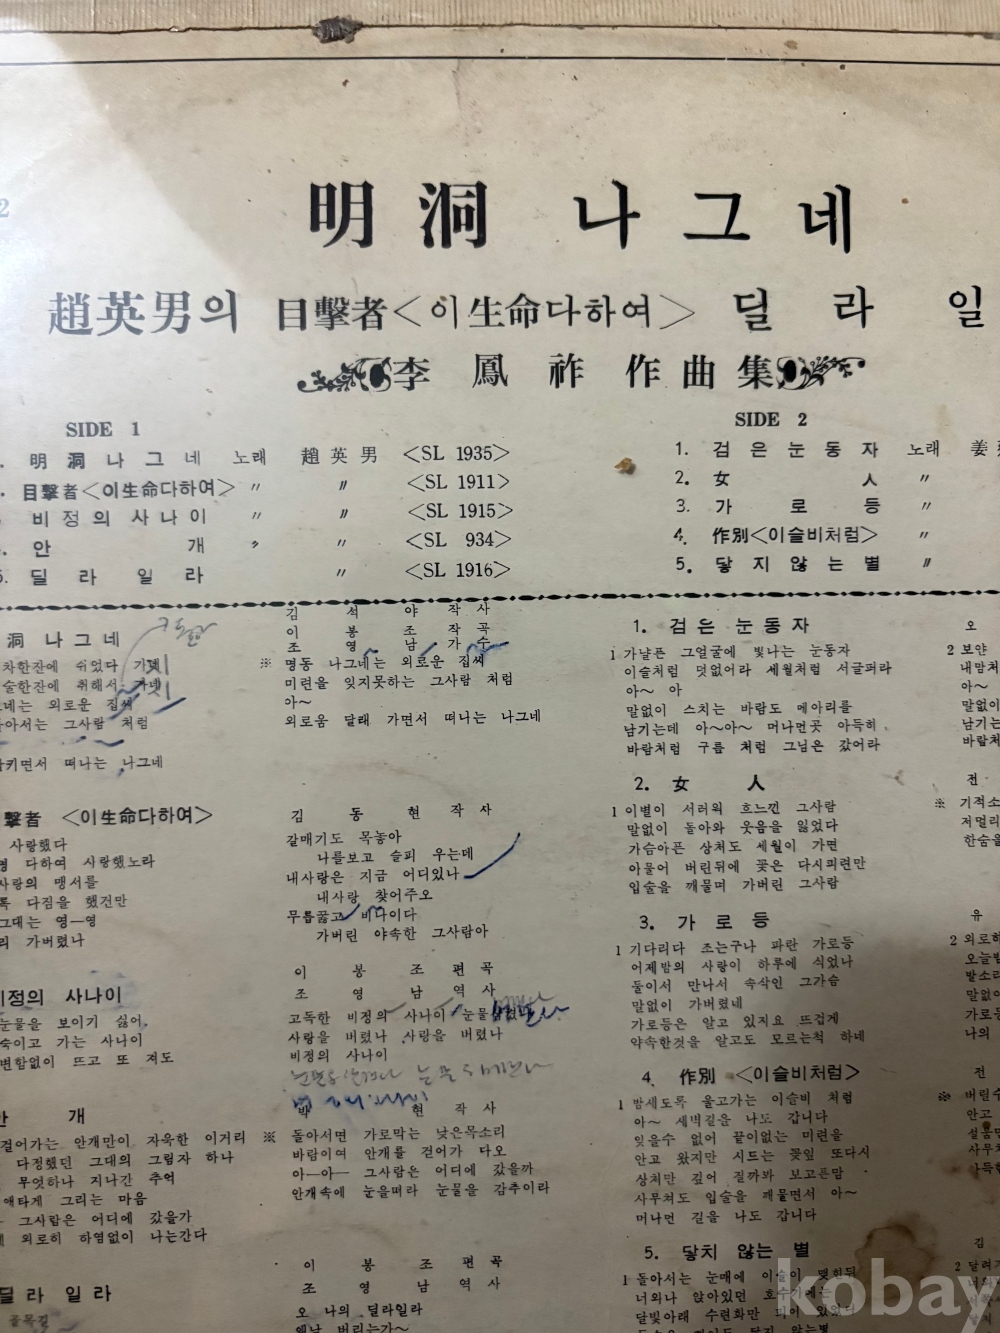 2
明洞 나그네
趙英男의 目擊者<이生命다하여> 딜라일
李鳳祚作曲集
SIDE 1
明洞나그네 노래 趙英男 <SL 1935>
目擊者<이生命다하여> 〃 〃 <SL 1911>
비정의사나이 〃 〃 <SL 1915>
안개 〃 〃 <SL 934>
5. 딜라일라 〃 <SL 1916>
SIDE 2
1. 검은눈동자 노래 姜
2. 女人 〃
3. 가로등 〃
4. 作別<이슬비처럼> 〃
5. 닿지않는별 〃
洞 나그네
김석야 작사
이봉조 작곡
조영남 가수
차한잔에 쉬었다 가네
술한잔에 취해서 가네
네는 외로운 집씨
아서는 그사람 처럼
키면서 떠나는 나그네
※ 명동 나그네는 외로운 집씨
미련을 잊지못하는 그사람 처럼
아~
외로움 달래 가면서 떠나는 나그네
擊者 <이生命다하여>
김동현 작사
사랑했다
명 다하여 사랑했노라
사랑의 맹서를
록 다짐을 했건만
그대는 영—영
리 가버렸나
갈매기도 목놓아
나를보고 슬피 우는데
내사랑은 지금 어디있나
내사랑 찾어주오
무릎꿇고 비나이다
가버린 야속한 그사람아
비정의 사나이
이봉조 편곡
조영남 역사
눈물을 보이기 싫어
숙이고 가는 사나이
변함없이 뜨고 또 져도
고독한 비정의 사나이 눈물
사랑을 버렸나 사랑을 버렸나
비정의 사나이
안개
박현 작사
걸어가는 안개만이 자욱한 이거리
다정했던 그대의 그림자 하나
무엇하나 지나간 추억
애타게 그리는 마음
그사람은 어디에 갔을가
외로히 하염없이 나는간다
※ 돌아서면 가로막는 낮은목소리
바람이여 안개를 걷어가 다오
아—아— 그사람은 어디에 갔을까
안개속에 눈을떠라 눈물을 감추이라
딜라일라
이봉조 편곡
조영남 역사
골목길
오 나의 딜라일라
옛날 버리는가~
1. 검은눈동자
오
1 가날픈 그얼굴에 빛나는 눈동자
이슬처럼 덧없어라 세월처럼 서글퍼라
아~ 아
말없이 스치는 바람도 메아리를
남기는데 아~아~ 머나먼곳 아득히
바람처럼 구름 처럼 그님은 갔어라
2 보얀
내맘처
아~
말없이
남기는
바람처
2. 女人
전
1 이별이 서러워 흐느낀 그사람
말없이 돌아와 웃음을 잃었다
가슴아픈 상처도 세월이 가면
아물어 버린뒤에 꽃은 다시피련만
입술을 깨물며 가버린 그사람
※ 기적소
저멀리
한숨을
3. 가로등
유
1 기다리다 조는구나 파란 가로등
어제밤의 사랑이 하루에 식었나
둘이서 만나서 속삭인 그가슴
말없이 가버렸네
가로등은 알고 있지요 뜨겁게
약속한것을 알고도 모르는척 하네
2 외로히
오늘밤
발소리
말없이
가로등
나의
4. 作別 <이슬비처럼>
전
1 밤새도록 울고가는 이슬비 처럼
아~ 새벽길을 나도 갑니다
잊을수 없어 끝이없는 미련을
안고 왔지만 시드는 꽃잎 또다시
상처만 깊어 질까봐 보고픈맘
사무쳐도 입술을 깨물면서 아~
머나먼 길을 나도 갑니다
※ 버린수
안고
설움만
사무쳐
가득한
5. 닿치않는별
김
1 돌아서는 눈매에 이슬이 맺힌뒤
너와나 앉아있던 호수가에는
달빛아래 수련화만 피어 있었다
2 달려가
kobay